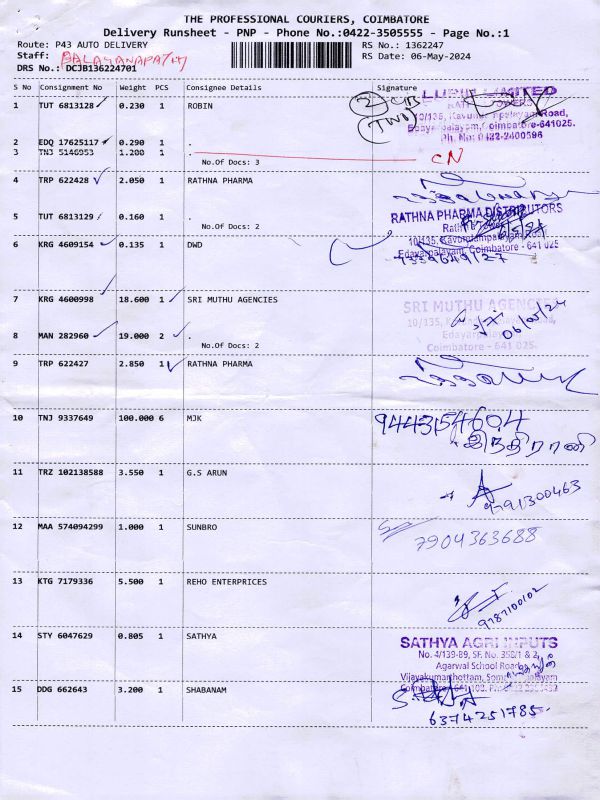 THE PROFESSIONAL COURIERS, COIMBATORE
Delivery Runsheet - PNP - Phone No.:0422-3505555 - Page No.:1
Route: P43 AUTO DELIVERY RS No.: 1362247
Staff: RS Date: 06-May-2024
DRS No.: DCJB136224701
S No Consignment No Weight PCS Consignee Details Signature
1 TUT 6813128 0.230 1 ROBIN
2 (TWO)
LIMITED
10/135, Road,
Edayarpalayam, Coimbatore-641025.
Ph. No: 0422-2400596
2 EDQ 17625117 0.290 1 .
3 TNJ 5146953 1.200 1 .
CN
No.Of Docs: 3
4 TRP 622428 2.050 1 RATHNA PHARMA
5 TUT 6813129 0.160 1 .
No.Of Docs: 2
RATHNA PHARMA DISTRIBUTORS
10/135, Kavundampalayam Road,
Edayarpalayam, Coimbatore - 641 025
6 KRG 4609154 0.135 1 DWD
7 KRG 4600998 18.600 1 SRI MUTHU AGENCIES
SRI MUTHU AGENCIES
10/135,
06/05/24
8 MAN 282960 19.000 2 .
No.Of Docs: 2
Coimbatore - 641 025.
9 TRP 622427 2.850 1 RATHNA PHARMA
10 TNJ 9337649 100.000 6 MJK
9443154604
இந்திராணி
11 TRZ 102138588 3.550 1 G.S ARUN
9791300463
12 MAA 574094299 1.000 1 SUNBRO
7904363688
13 KTG 7179336 5.500 1 REHO ENTERPRICES
9787100102
14 STY 6047629 0.805 1 SATHYA
SATHYA AGRI INPUTS
No. 4/139-89, SF. No. 350/1 & 2,
Agarwal School Road,
Vijayakumarthottam,
15 DDG 662643 3.200 1 SHABANAM
6374251785